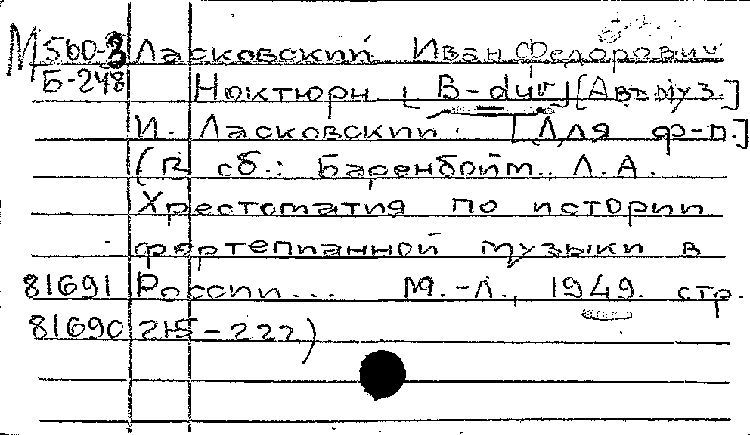 М 560-3 Ласковский Иван Федорович
Б-248 Ноктюрн [B-dur] [Авт. муз.]
И. Ласковский. [Для ф-п.]
(В сб.: Баренбойм, Л.А.
Хрестоматия по истории
фортепианной музыки в
81691 России... М.-Л., 1949. стр.
81690 215-222)